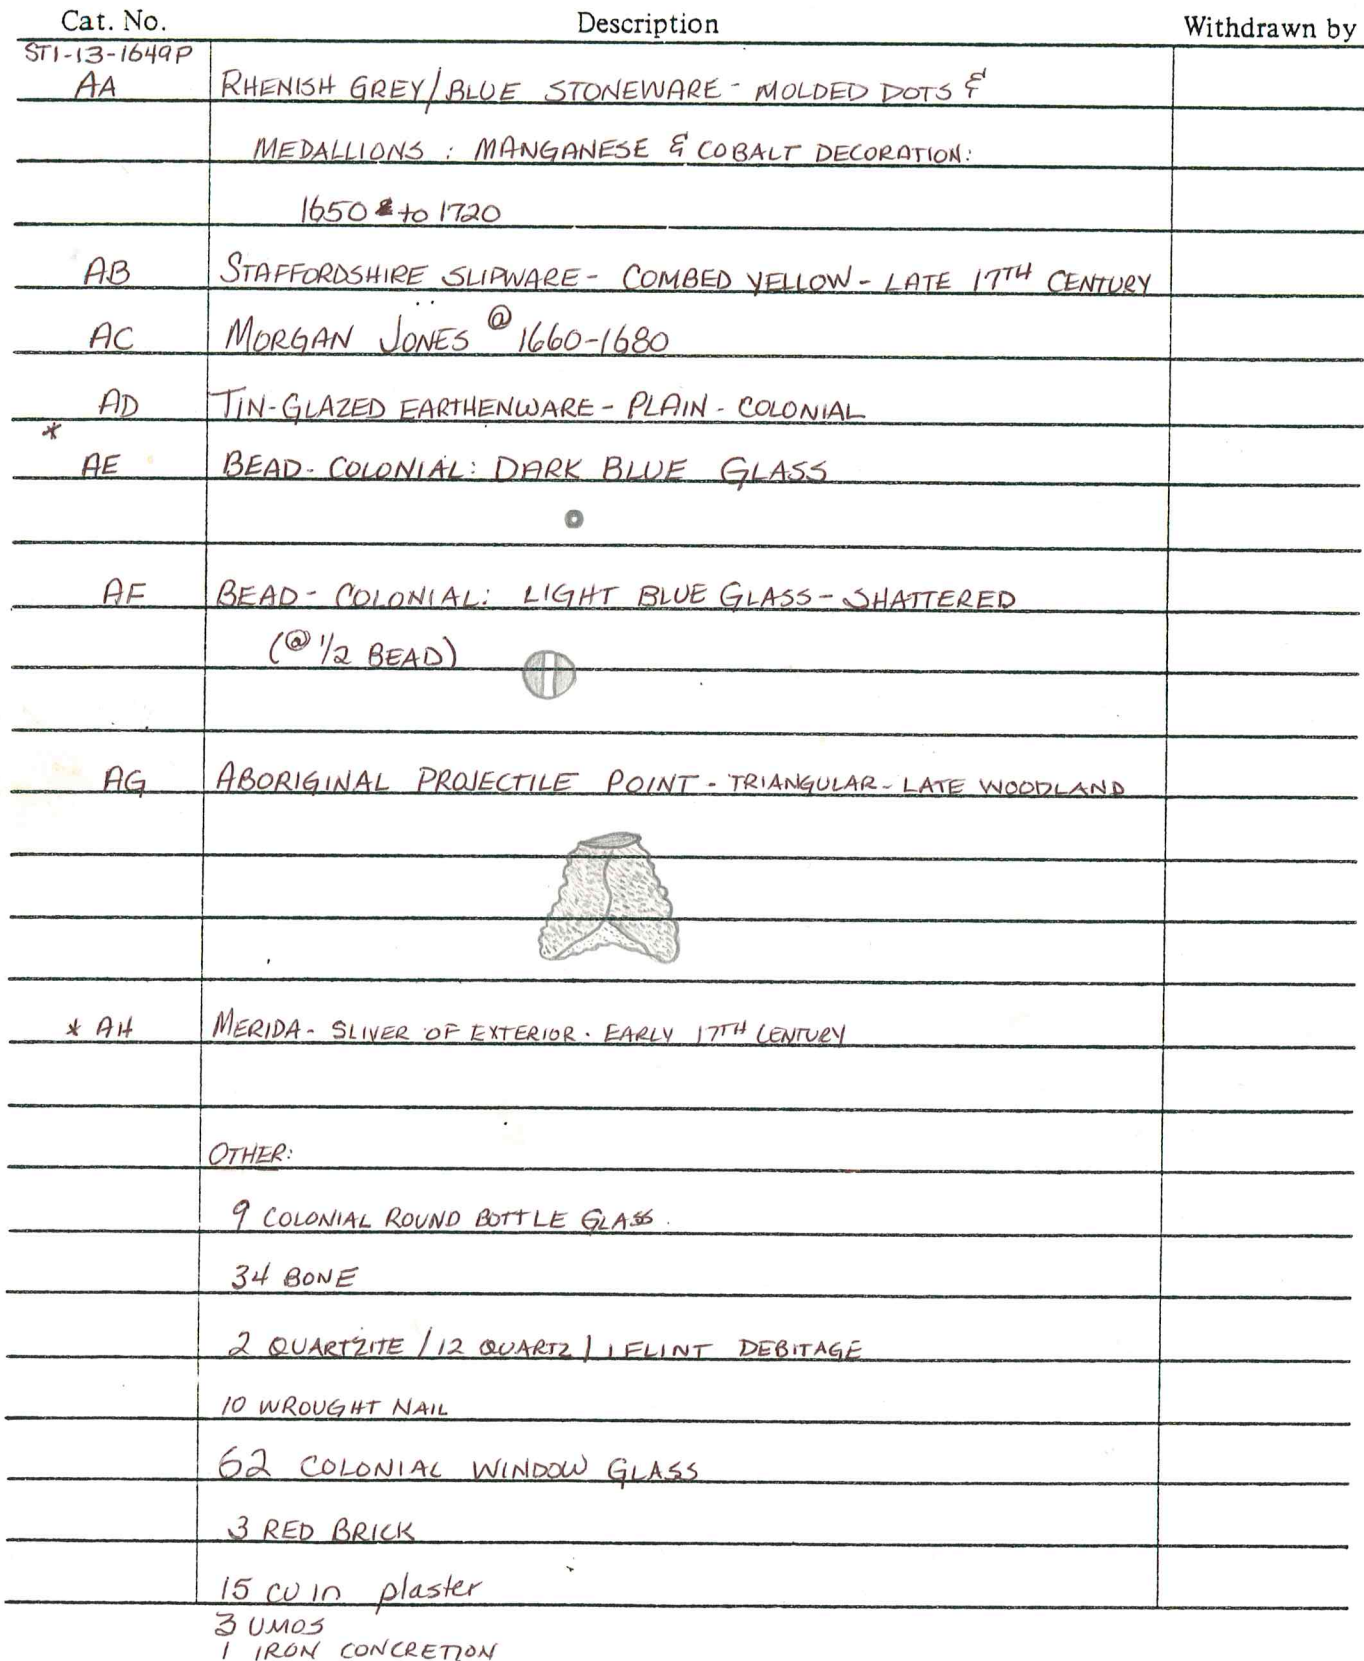 Cat. No. Description Withdrawn by
ST1-13-1649P
AA RHENISH GREY/BLUE STONEWARE - MOLDED DOTS &
MEDALLIONS : MANGANESE & COBALT DECORATION:
1650 to 1720
AB STAFFORDSHIRE SLIPWARE - COMBED YELLOW - LATE 17TH CENTURY
AC MORGAN JONES @ 1660-1680
AD TIN-GLAZED EARTHENWARE - PLAIN - COLONIAL
*
AE BEAD - COLONIAL: DARK BLUE GLASS
AF BEAD - COLONIAL: LIGHT BLUE GLASS - SHATTERED
(@ 1/2 BEAD)
AG ABORIGINAL PROJECTILE POINT - TRIANGULAR - LATE WOODLAND
* AH MERIDA - SLIVER OF EXTERIOR. EARLY 17TH CENTURY
OTHER:
9 COLONIAL ROUND BOTTLE GLASS.
34 BONE
2 QUARTZITE / 12 QUARTZ / 1 FLINT DEBITAGE
10 WROUGHT NAIL
62 COLONIAL WINDOW GLASS
3 RED BRICK
15 cu in plaster
3 UMOS
1 IRON CONCRETION